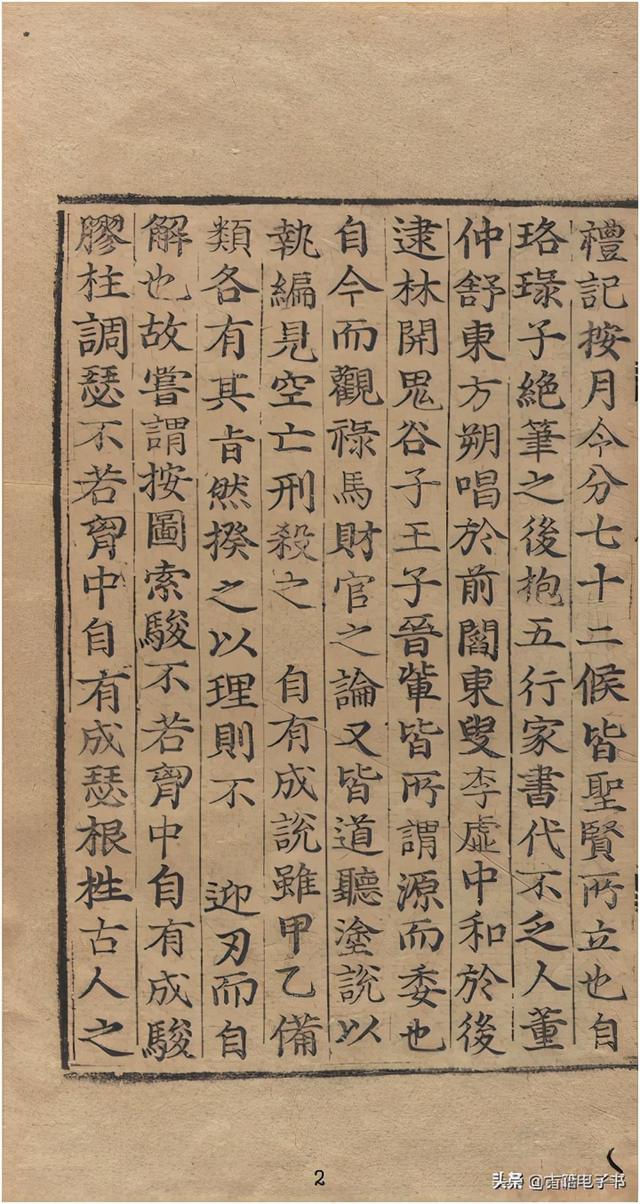 禮記按月令分七十二候皆聖賢所立也自
珞琭子絶筆之後抱五行家書代不乏人董
仲舒東方朔唱於前閻東叟李虛中和於後
逮林開鬼谷子王子晉軰皆所謂源而委也
自今而觀祿馬財官之論又皆道聽塗說以
執編見空亡刑殺之 自有成說雖甲乙備
類各有其旨然揆之以理則不 迎刃而自
解也故嘗謂按圖索駿不若胷中自有成駿
膠柱調瑟不若胷中自有成瑟根性古人之
2
头条 @古籍电子书